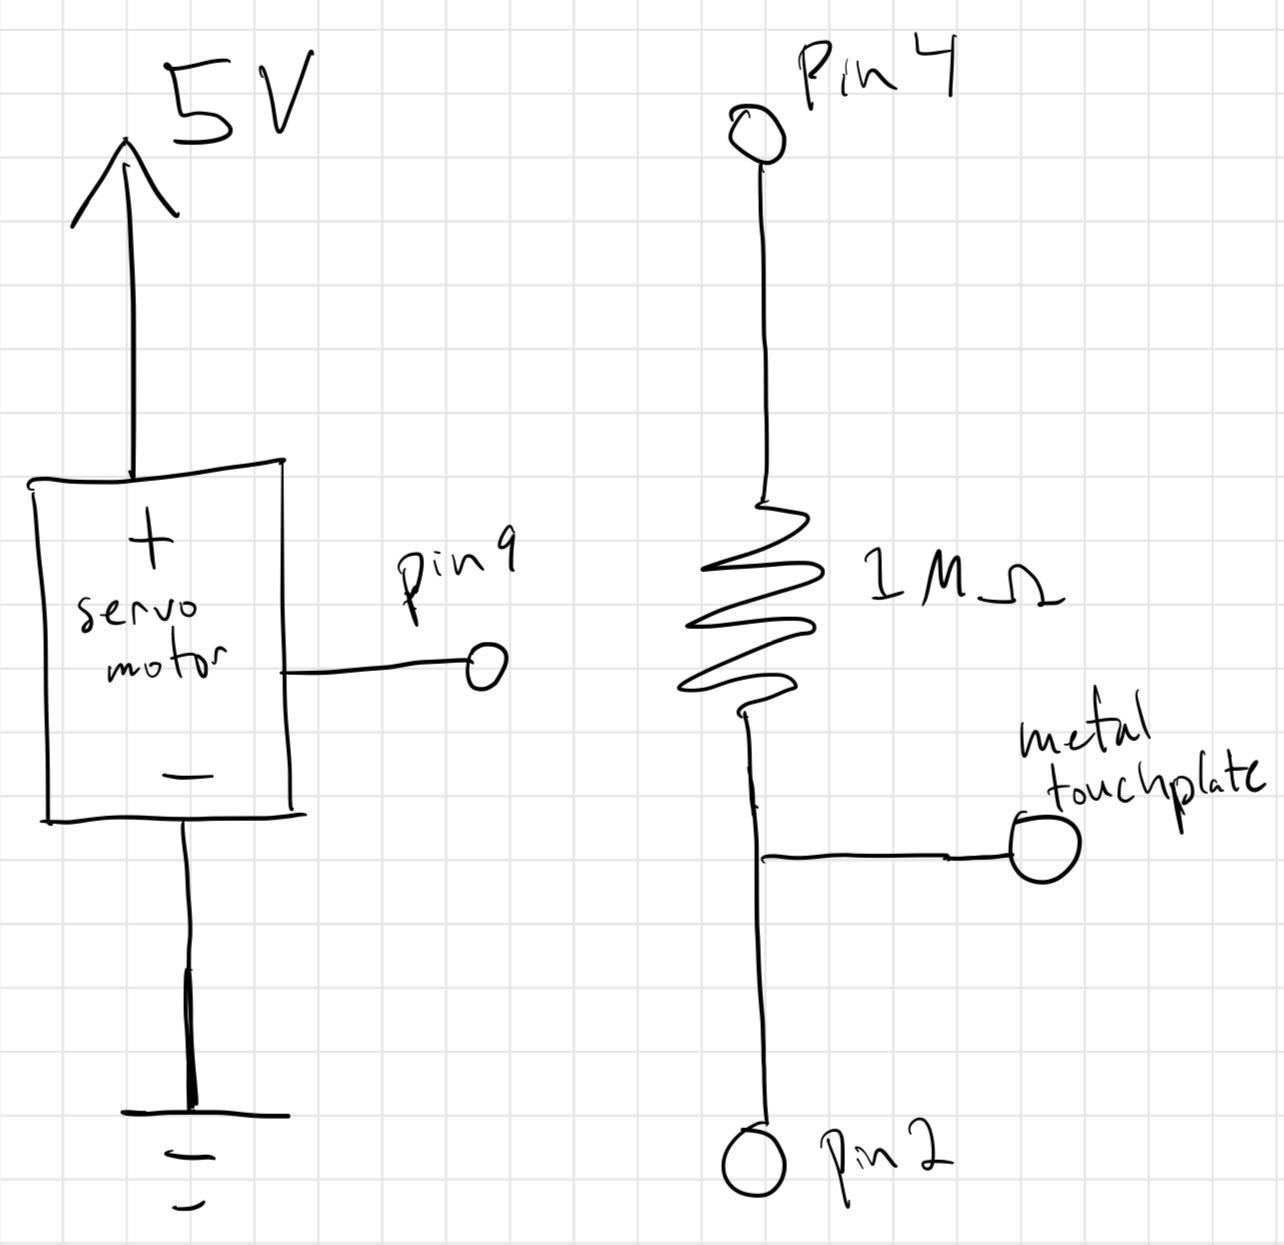 5V
Pin 4
+
servo
motor
−
pin 9
1MΩ
metal
touchplate
pin 2